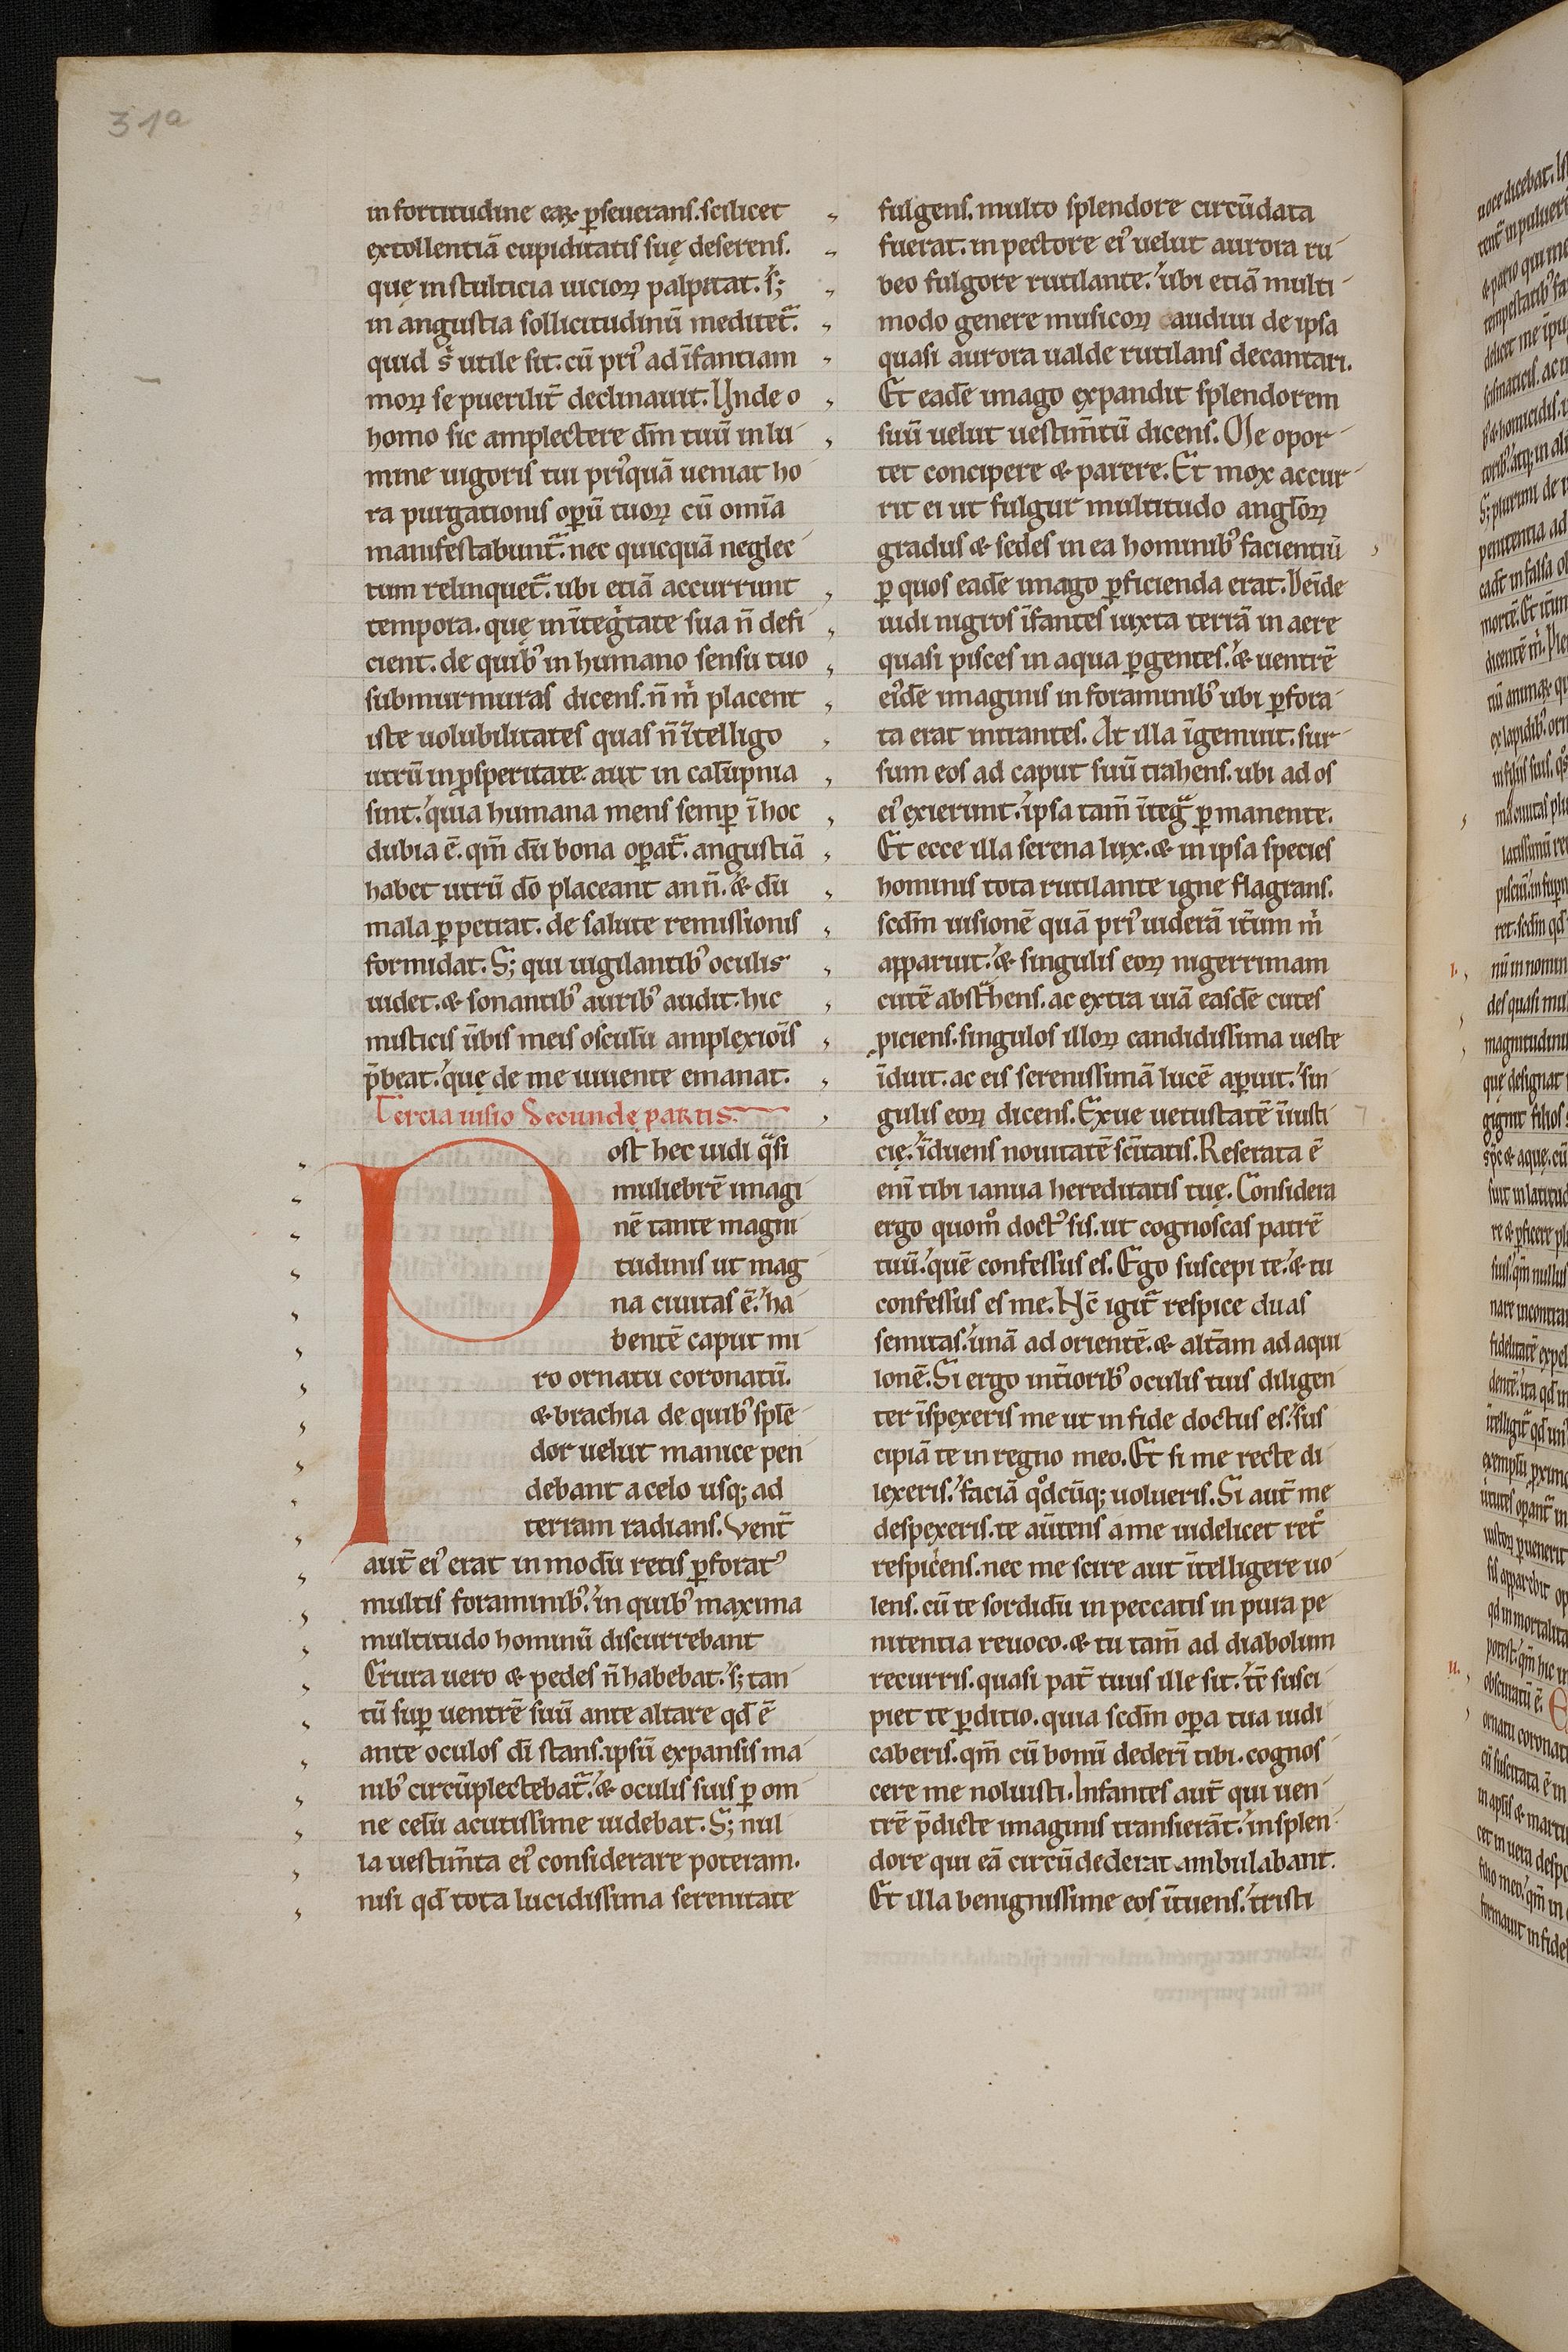 31a
in fortitudine eaꝝ ꝑseuerans. scilicet
extollentiā cupiditatis suę deserens.
quę in stulticia uicioꝝ palpitat. s;
in angustia sollicitudinū meditet᷑.
quid s̾ utile sit. cū pri᾽ ad īfantiam
moꝝ se puerilit̄ declinauit. Unde o
homo sic amplectere dm̄ tuū in lu
mine uigoris tui pri᾽quā ueniat ho
ra purgationis oꝑū tuoꝝ cū omīa
manifestabunt᷑. nec quicquā neglec
tum relinquet᷑. ubi etiā accurrunt
tempora. quę in ītegͥtate sua n̄ defi
cient. de quib᾽ in humano sensu tuo
submurmuras dicens. n̄ mͥ placent
iste uolubilitates quas n̄ ītelligo
utrū in ꝓsperitate aut in calūpnia
sint. quia humana mens semꝑ ī hoc
dubia ē. qm̄ dū bona oꝑat᷑. angustiā
habet utrū dō placeant an n̄. & dū
mala ꝑpetrat. de salute remissionis
formidat. S; qui uigilantib᾽ oculis
uidet. & sonantib᾽ aurib᾽ audit. hic
misticis ūbis meis osculū amplexiōis
p̄beat. quę de me uiuente emanat.
Tercia uisio Secundę partis.
Post hec uidi qͣsi
muliebrē imagi
nē tante magni
tudinis ut mag
na ciuitas ē. ha
bentē caput mi
ro ornatu coronatū.
& brachia de quib᾽ splē
dor uelut manice pen
debant a celo usq; ad
terram radians. Vent̄
aut̄ ei᾽ erat in modū retis ꝑforat᾽
multis foraminib᾽. in quib᾽ maxima
multitudo hominū discurrebant
Crura uero & pedes n̄ habebat. s; tan
tū suꝑ uentrē suū ante altare qd̄ ē
ante oculos dī stans. ipsū expansis ma
nib᾽ circūplectebat᷑. & oculis suis ꝑ om
ne celū acutissime uidebat. S; nul
la uestim̄ta ei᾽ considerare poteram.
nisi qd̄ tota lucidissima serenitate
fulgens. multo splendore circūdata
fuerat. in pectore ei᾽ uelut aurora ru
beo fulgore rutilante. ubi etiā multi
modo genere musicoꝝ audiui de ipsa
quasi aurora ualde rutilans decantari.
Et eadē imago expandit splendorem
suū uelut uestim̄tū dicens. Me opor
tet concipere & parere. Et mox accur
rit ei ut fulgur multitudo angl̄oꝝ
gradus & sedes in ea hominib᾽ facientiū
ꝑ quos eadē imago ꝑficienda erat. Deīde
uidi nigros īfantes iuxta terrā in aere
quasi pisces in aqua ꝑgentes. & uentrē
ei᾽dē imaginis in foraminib᾽ ubi ꝑfora
ta erat intrantes. At illa īgemuit. sur
sum eos ad caput suū trahens. ubi ad os
ei᾽ exierunt. ipsa tam̄ ītegͣ ꝑmanente.
Et ecce illa serena lux. & in ipsa species
hominis tota rutilante igne flagrans.
scdm̄ uisionē quā pri᾽ uiderā it̄um mͥ
apparuit. & singulis eoꝝ nigerrimam
cutē abstͣhens. ac extra uiā easdē cutes
ꝓiciens. singulos illoꝝ candidissima ueste
īduit. ac eis serenissimā lucē aꝑuit. sin
gulis eoꝝ dicens. Exue uetustatē īiusti
cię. īduens nouitatē scītatis. Reserata ē
enī tibi ianua hereditatis tuę. Considera
ergo quom̊ doct᾽ sis. ut cognoscas patrē
tuū. quē confessus es. Ego suscepi te. & tu
confessus es me. Nc̄ igit᷑ respice duas
semitas. unā ad orientē. & alt̄am ad aqui
lonē. Si ergo int̄iorib᾽ oculis tuis diligen
ter īspexeris me ut in fide doctus es. sus
cipiā te in regno meo. Et si me recte di
lexeris. faciā qd̊cūq; uolueris. Si aut̄ me
despexeris. te aūtens a me uidelicet retͦ
respiciens. nec me scire aut ītelligere uo
lens. cū te sordidū in peccatis in pura pe
nitentia reuoco. & tu tam̄ ad diabolum
recurris. quasi pat̄ tuus ille sit. tē susci
piet te ꝑditio. quia scdm̄ oꝑa tua iudi
caberis. qm̄ cū bonū dederī tibi. cognos
cere me noluisti. Infantes aut̄ qui uen
trē p̄dicte imaginis transierāt. in splen
dore qui eā circūdederat ambulabant.
Et illa benignissime eos ītuens. tristi